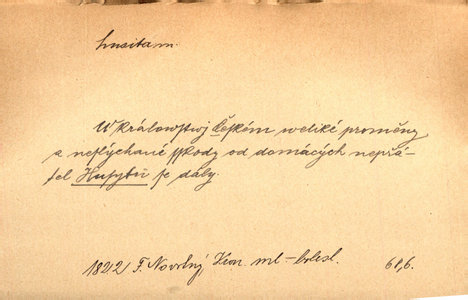 husitam.
W králowstwj českém weliké proměny
a neslýchané sskody od domácých nepřá-
tel Husytů se dály.
1822 F. Novotný Kron. ml-bolesl. 68,6.